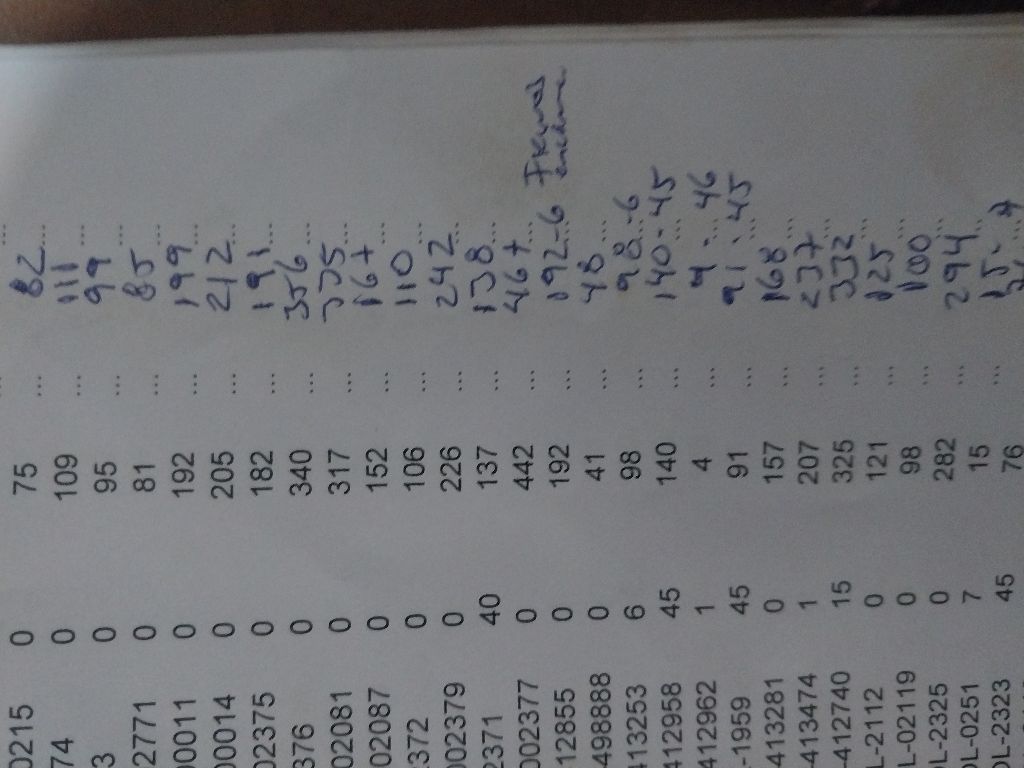 02215 0 75 ... 82 ...
74 0 109 ... 111 ...
3 0 95 ... 99 ...
2771 0 81 ... 85 ...
00011 0 192 ... 199 ...
00014 0 205 ... 212 ...
02375 0 182 ... 191 ...
376 0 340 ... 356 ...
02081 0 317 ... 335 ...
02087 0 152 ... 167 ...
372 0 106 ... 110 ...
002379 0 226 ... 242 ...
2371 40 137 ... 138 ...
002377 0 442 ... 467 ...
12855 0 192 ... 192-6 ...
498888 0 41 ... 48 ...
413253 6 98 ... 98-6 ...
412958 45 140 ... 140-45 ...
412962 1 4 ... 4-46 ...
-1959 45 91 ... 91-45 ...
413281 0 157 ... 168 ...
413474 1 207 ... 237 ...
412740 15 325 ... 332 ...
L-2112 0 121 ... 125 ...
L-02119 0 98 ... 100 ...
OL-2325 0 282 ... 294 ...
OL-0251 7 15 ... 15-7 ...
OL-2323 45 76 ...